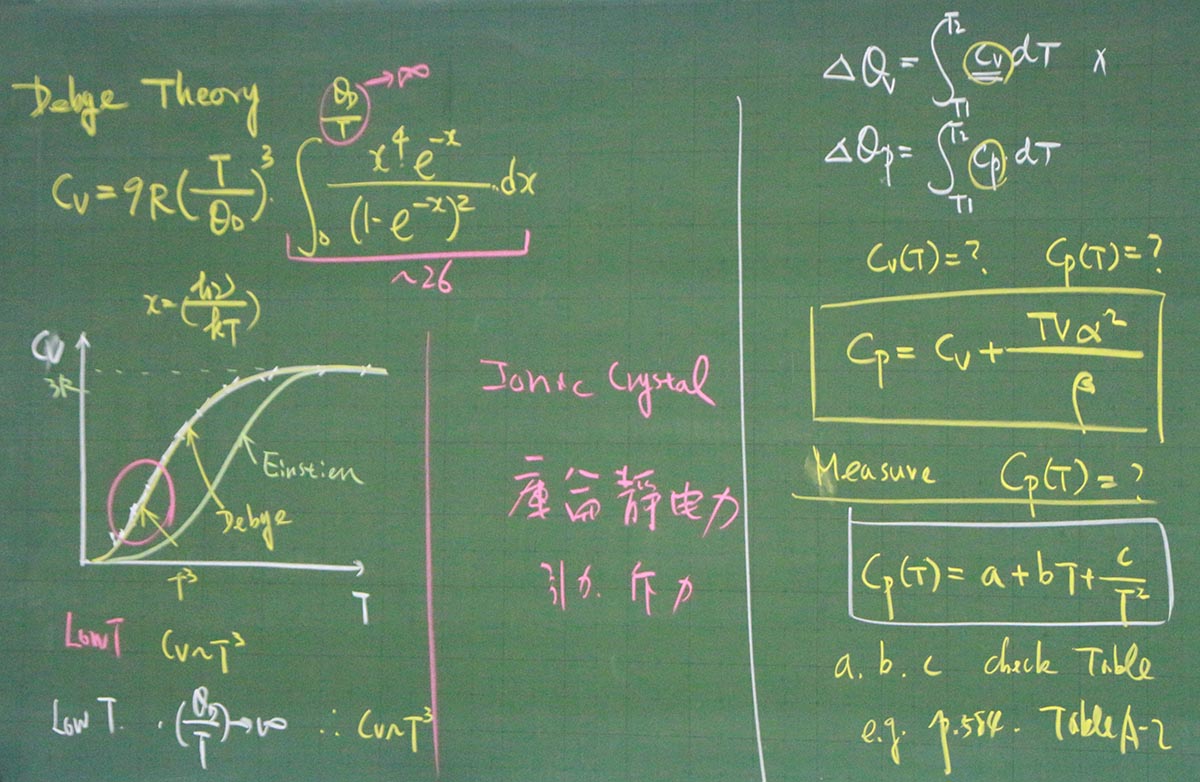 Debye Theory
Cv = 9R(T/θD)³ ∫₀^(θD/T →∞) x⁴e⁻ˣ/(1-e⁻ˣ)² dx
~26
x=(hν/kT)
Cv
3R
Einstien
Debye
T³
T
Low T Cv~T³
Low T. (θD/T)→∞ ∴ Cv~T³
Ionic Crystal
庫侖靜电力
引力. 斥力
ΔQv = ∫T1^T2 Cv dT x
ΔQp = ∫T1^T2 Cp dT
Cv(T)=? Cp(T)=?
Cp = Cv + TVα²/β
Measure Cp(T)=?
Cp(T) = a+bT+c/T²
a. b. c check Table
e.g. p.584. Table A-2